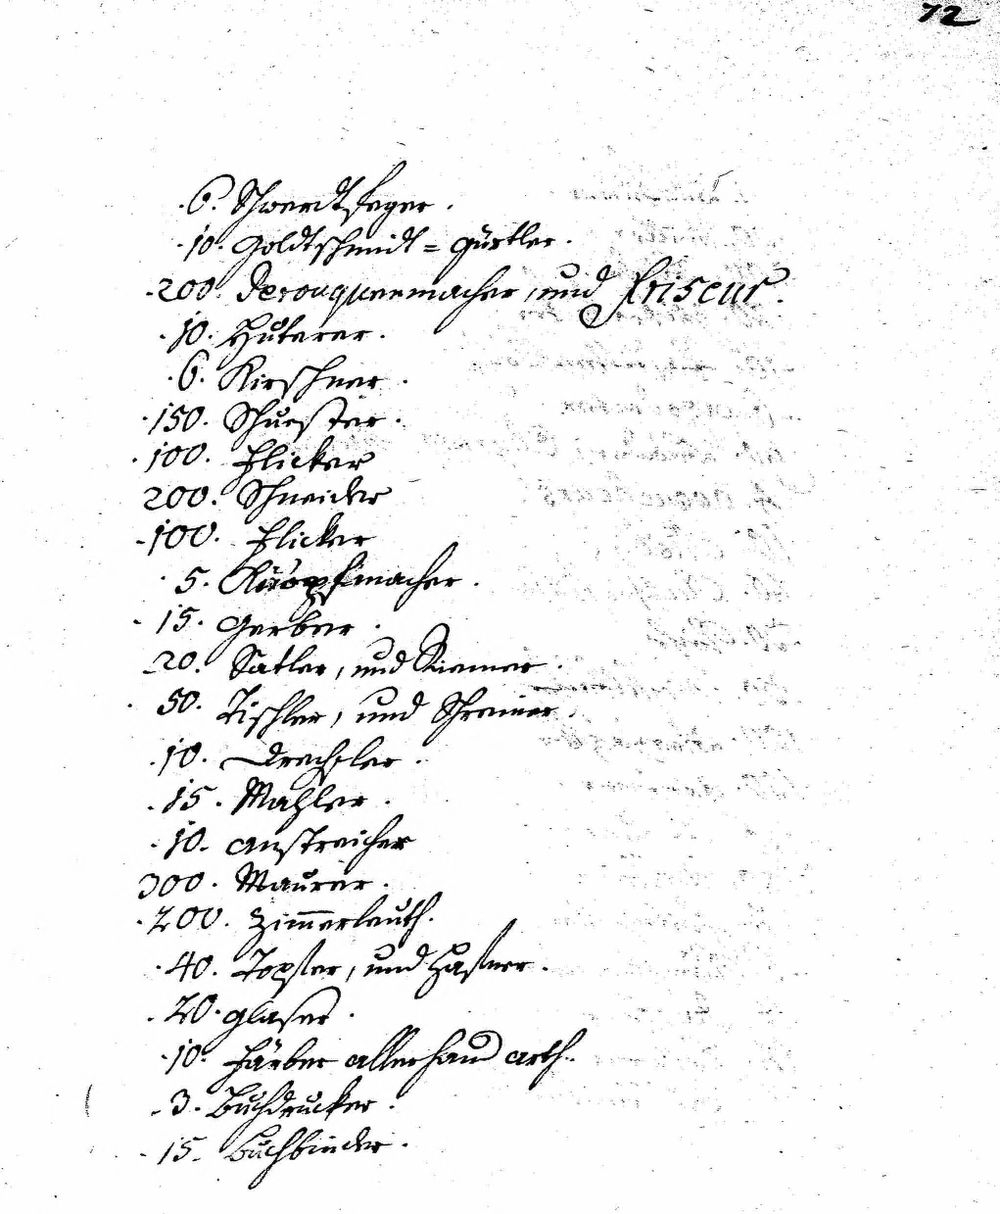 72
6. Schwerdtfeger.
10. Goldtschmidt = Gürtler.
200. Perouquenmacher, und Friseur.
10. Huterer.
6. Kirschner.
150. Schuester.
100. Flicker
200. Schneider
100. Flicker
5. Knöpfmacher.
15. Gerber.
20. Satler, und Riemer.
50. Tischler, und Schreiner.
10. Drechsler.
15. Mahler.
10. Anstreicher
300. Maurer.
200. Zimmerleuth.
40. Topfer, und Hafner.
20. Glaser.
10. Färber allerhand arth.
3. Buchdrucker.
15. Buchbinder.